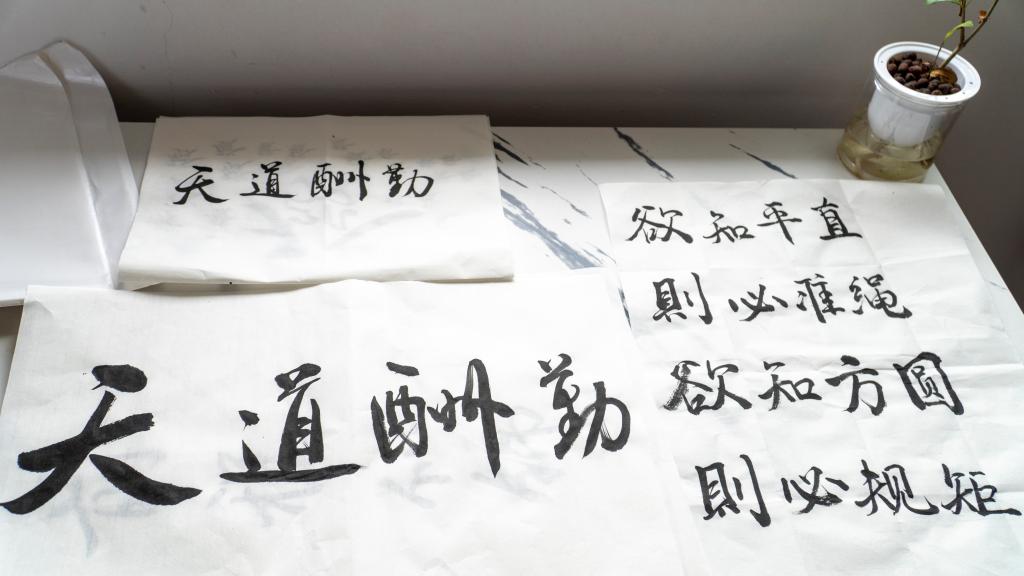 天道酬勤
天道酬勤
欲知平直
則必准绳
欲知方圆
則必规矩